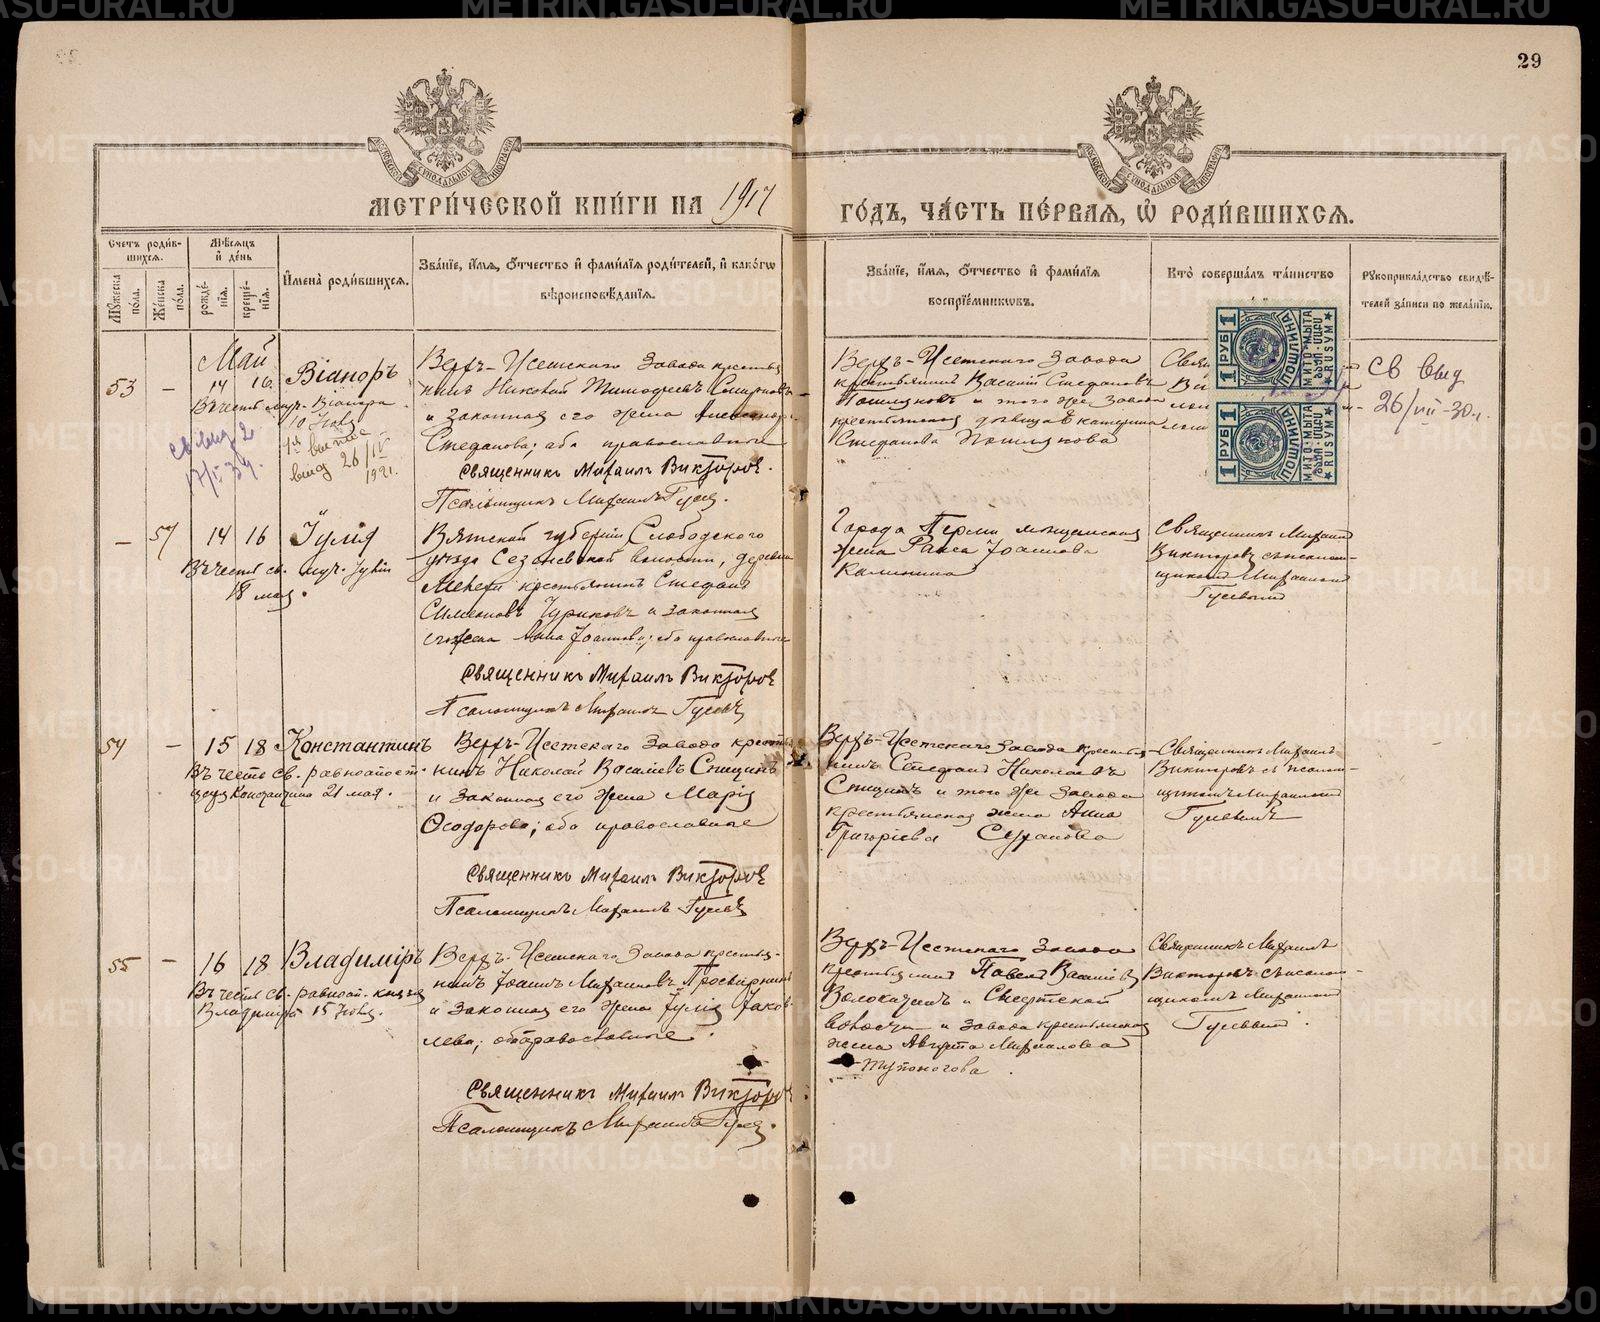 29
МЕТРИ́ЧЕСКОЙ КНИ́ГИ НА 1917 ГО́ДЪ, ЧА́СТЬ ПЕ́РВАЯ, Ѡ РОДИ́ВШИХСЯ.
Счетъ роди́вшихся.
Му́жеска по́ла.
Же́нска по́ла.
Мѣ́сяцъ и́ де́нь
рожде́нія.
креще́нія.
И҆мена̀ роди́вшихся.
Зва́ніе, и҆́мя, о҆́тчество и҆ фами́лія роди́телей, и҆ како́гѡ
вѣроисповѣ́данія.
Зва́ніе, и҆́мя, о҆́тчество и҆ фами́лія
воспріе́мниковъ.
Кто̀ соверша́лъ та́инство
Рукоприкла́дство свидѣ́-
телей за́писи по жела́нію.
53
–
Май
14 16
Віаноръ
Въ честь муч. Віанора
Верхъ-Исетскаго Завода крестья
нинъ Николай Тимофеевъ Смирновъ
и законная его жена Александра
Стефанова; оба православные
Священникъ Михаилъ Викторов.
Псаломщикъ Михаилъ Гусев.
Верхъ-Исетскаго Завода
крестьянинъ Василій Стефановъ
и того же завода
крестьянская девица Екатерина
Стефанова
1 РУБ 1
ПОШЛИНА
1 РУБ 1
ПОШЛИНА
св выд
26/VII-30г.
выд 26/IV
1921.
–
57
14 16
Іулія
Въ честь св. муч. Іуліи
18 мая.
Вятской губерніи Слободского
уезда Сезеневской волости, деревни
крестьянинъ Стефанъ
Симеоновъ Чуриновъ и законная
его жена Анна Іоаннова; оба православные
Священникъ Михаилъ Викторов
Псаломщикъ Михаилъ Гусевъ
Города Перми мещанская
жена Раиса Іоаннова
Калинина
Священникъ Михаилъ
Викторовъ съ псалом-
щикомъ Михаиломъ
Гусевымъ
54
–
15 18
Константинъ
Въ честь св. равноапост.
царя Константина 21 мая.
Верхъ-Исетскаго Завода крестья
нинъ Николай Василіевъ Спицинъ
и законная его жена Марія
Ѳеодорова; оба православные
Священникъ Михаилъ Викторов
Псаломщикъ Михаилъ Гусевъ
Верхъ-Исетскаго Завода крестья-
нинъ Стефанъ Николаевъ
Спицинъ и того же завода
крестьянская жена Анна
Григоріева
Священникъ Михаилъ
Викторовъ съ псалом-
щикомъ Михаиломъ
Гусевымъ
55
–
16 18
Владиміръ
Въ честь св. равноап. князя
Владиміра 15 Іюля.
Верхъ-Исетскаго Завода крестья-
нинъ Іоаннъ Михаиловъ Просвирнинъ
и законная его жена Іулія Іаков-
лева; оба православные.
Священникъ Михаилъ Викторов
Псаломщикъ Михаилъ Гусев.
Верхъ-Исетскаго Завода
крестьянинъ Павелъ Василіев
и
волости и завода крестьянская
жена Августа Михаиловна
Тупоногова.
Священникъ Михаилъ
Викторовъ съ псалом-
щикомъ Михаиломъ
Гусевымъ.
METRIKI.GASO-URAL.RU